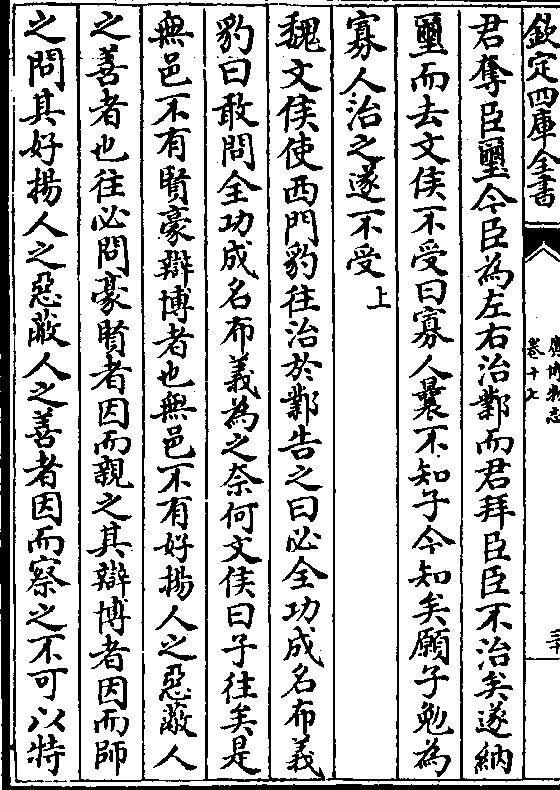 欽定四庫全書
廣博物志
卷十七
君奪臣璽今臣為左右治鄴而君拜臣臣不治矣遂納
璽而去文侯不受曰寡人曩不知子今知矣願子勉為
寡人治之遂不受上
魏文侯使西門豹往治於鄴告之曰必全功成名布義
豹曰敢問全功成名布義為之奈何文侯曰子往矣是
無邑不有賢豪辯博者也無邑不有好揚人之惡蔽人
之善者也往必問豪賢者因而親之其辯博者因而師
之問其好揚人之惡蔽人之善者因而察之不可以特